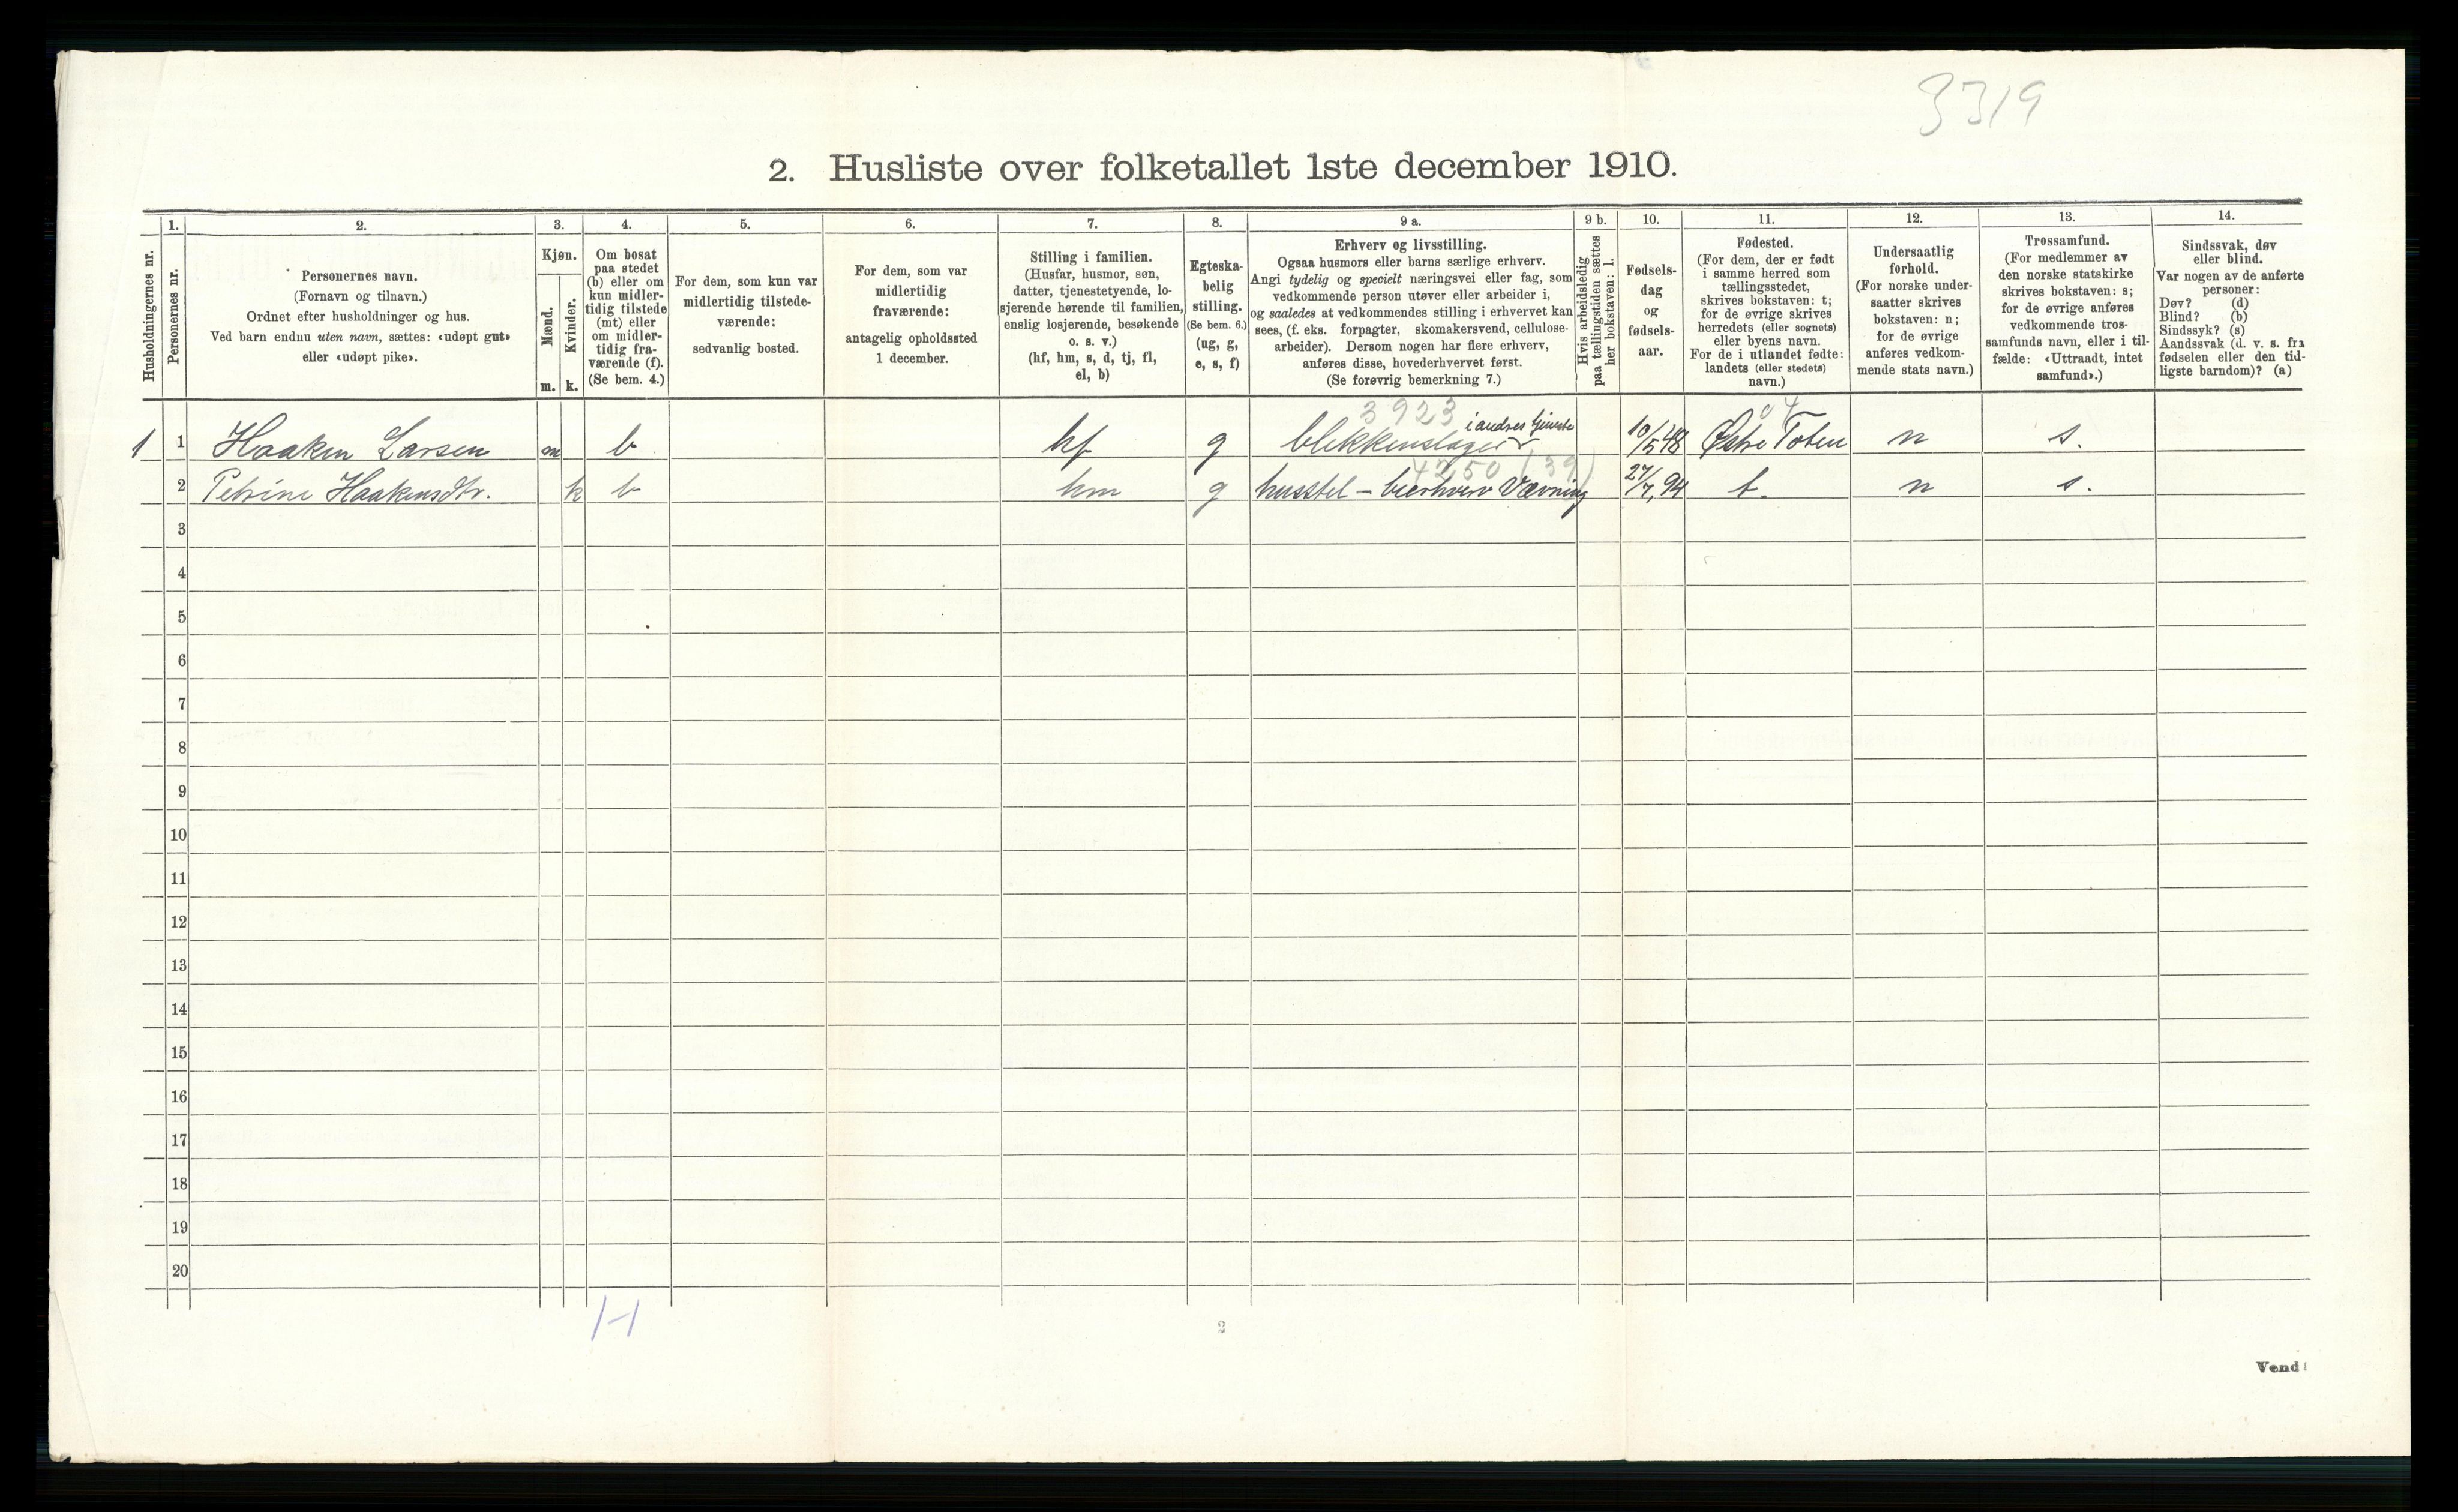 3319
2. Husliste over folketallet 1ste december 1910.
Husholdningernes nr.
1.
Personernes nr.
2.
Personernes navn.
(Fornavn og tilnavn.)
Ordnet efter husholdninger og hus.
Ved barn endnu uten navn, sættes: «udøpt gut»
eller «udøpt pike».
3.
Kjøn.
Mænd.
Kvinder.
m. k.
4.
Om bosat
paa stedet
(b) eller om
kun midler-
tidig tilstede
(mt) eller
om midler-
tidig fra-
værende (f).
(Se bem. 4.)
5.
For dem, som kun var
midlertidig tilstede-
værende:
sedvanlig bosted.
6.
For dem, som var
midlertidig
fraværende:
antagelig opholdssted
1 december.
7.
Stilling i familien.
(Husfar, husmor, søn,
datter, tjenestetyende, lo-
sjerende hørende til familien,
enslig losjerende, besøkende
o. s. v.)
(hf, hm, s, d, tj, fl,
el, b)
8.
Egteska-
belig
stilling.
(Se bem. 6.)
(ug, g,
e, s, f)
9 a.
Erhverv og livsstilling.
Ogsaa husmors eller barns særlige erhverv.
Angi tydelig og specielt næringsvei eller fag, som
vedkommende person utøver eller arbeider i,
og saaledes at vedkommendes stilling i erhvervet kan
sees, (f. eks. forpagter, skomakersvend, cellulose-
arbeider). Dersom nogen har flere erhverv,
anføres disse, hovederhvervet først.
(Se forøvrig bemerkning 7.)
9 b.
Hvis arbeidsledig
paa tællingstiden sættes
her bokstaven: l.
10.
Fødsels-
dag
og
fødsels-
aar.
11.
Fødested.
(For dem, der er født
i samme herred som
tællingsstedet,
skrives bokstaven: t;
for de øvrige skrives
herredets (eller sognets)
eller byens navn.
For de i utlandet fødte:
landets (eller stedets)
navn.)
12.
Undersaatlig
forhold.
(For norske under-
saatter skrives
bokstaven: n;
for de øvrige
anføres vedkom-
mende stats navn.)
13.
Trossamfund.
(For medlemmer av
den norske statskirke
skrives bokstaven: s;
for de øvrige anføres
vedkommende tros-
samfunds navn, eller i til-
fælde: «Uttraadt, intet
samfund».)
14.
Sindssvak, døv
eller blind.
Var nogen av de anførte
personer:
Døv? (d)
Blind? (b)
Sindssyk? (s)
Aandssvak (d. v. s. fra
fødselen eller den tid-
ligste barndom)? (a)
3923 i andres tjeneste 04
1 1 Haaken Larsen m b hf g blikkenslager 10/5 48 Østre Toten n s.
4250 (39)
2 Petrine Haakensdtr. k b hm g husstel – bierhverv Vævning 27/7, 94 t. n s.
3
4
5
6
7
8
9
10
11
12
13
14
15
16
17
18
19
20
1-1
2
Vend!